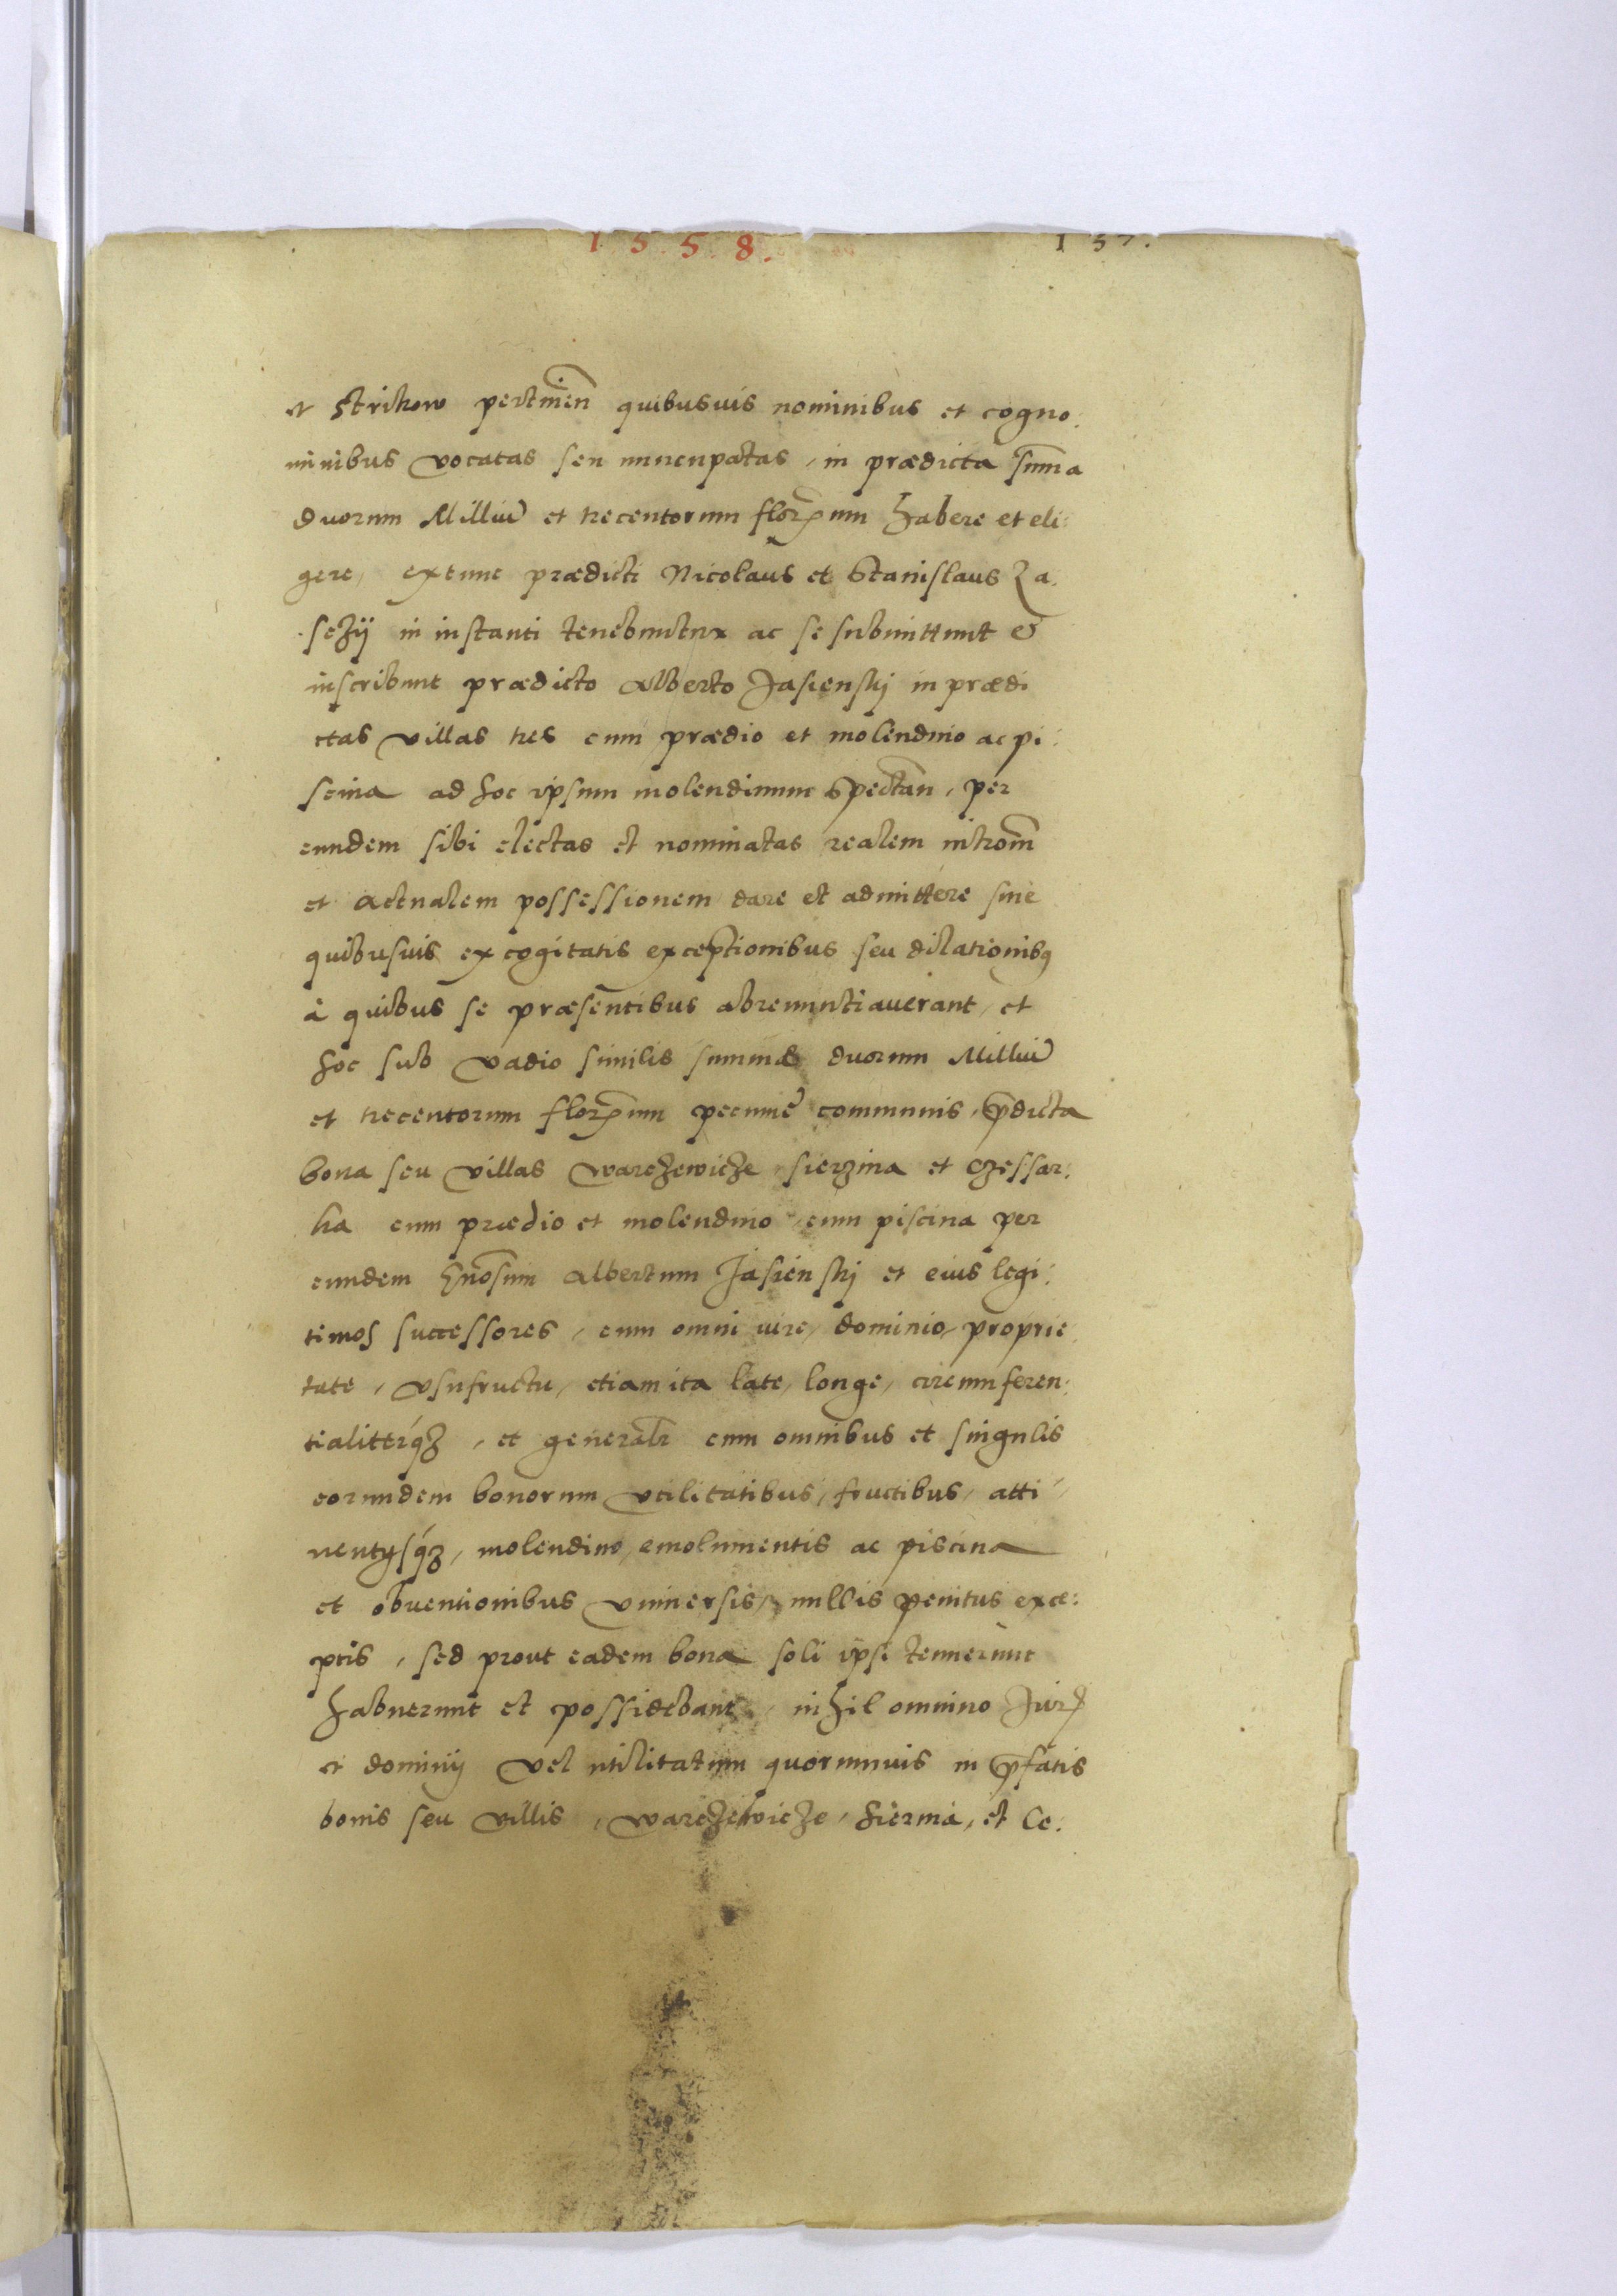 1 5 5 8. 157.
et Strikow pertinen quibusuis nominibus et cogno:
minibus vocatas seu nuncupatas, in prædicta summa
duorum Milliu et trecentorum florenum habere et eli:
gere, extunc prædicti Nicolaus et Stanislaus Za:
sczij in instanti tenebuntur ac se submittunt &
inscribunt prædicto Alberto Jasienskj in prædi
ctas villas tres cum prædio et molendino ac pi:
scina ad hoc ipsum molendinum spectan, per
eundem sibi electas et nominatas realem introm
et actualem possessionem dare et admittere sine
quibusuis excogitatis exceptionibus seu dilationibq
à quibus se præsentibus abrenuntiauerant, et
hoc sub vadio similis summæ duorum Milliu
et trecentorum florenum pecunie communis, pdicta
bona seu villas Warczewicze sierzina et Czessar:
ka cum prædio et molendino cum piscina per
eundem Gnosum Albertum Jasienskj et eius legi:
timos successores, cum omni iure, dominio, proprie
tate, vsufructu, etiam ita late, longe, circumferen:
tialiterq3, et generalr cum omnibus et singulis
eorundem bonorum vtilitatibus, fructibus, atti
nentijsq3, molendino, emolumentis ac piscina
et obuentionibus vniuersis, nullis penitus exce:
ptis, sed prout eadem bona soli ipsi tenuerunt
habuerunt et possidebant, nihil omnino Juris
et dominij vel utilitatum quorumuis in pfatis
bonis seu villis, Warczewicze, Sierina, et Ce: